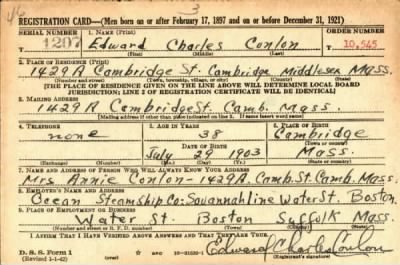 46 3
REGISTRATION CARD—(Men born on or after February 17, 1897 and on or before December 31, 1921)
SERIAL NUMBER 1. NAME (Print) ORDER NUMBER
1207 Edward Charles Conlon 10,545
(First) (Middle) (Last)
2. PLACE OF RESIDENCE (Print)
1429A Cambridge St. Cambridge Middlesex Mass.
(Number and street) (Town, township, village, or city) (County) (State)
[THE PLACE OF RESIDENCE GIVEN ON THE LINE ABOVE WILL DETERMINE LOCAL BOARD
JURISDICTION; LINE 2 OF REGISTRATION CERTIFICATE WILL BE IDENTICAL]
3. MAILING ADDRESS
1429A Cambridge St. Camb. Mass.
[Mailing address if other than place indicated on line 2. If same insert word same]
4. TELEPHONE 5. AGE IN YEARS 6. PLACE OF BIRTH
none 38 Cambridge
DATE OF BIRTH (Town or county)
July 29 1903 Mass.
(Exchange) (Number) (Mo.) (Day) (Yr.) (State or country)
7. NAME AND ADDRESS OF PERSON WHO WILL ALWAYS KNOW YOUR ADDRESS
Mrs Annie Conlon-1429A. Camb. St. Camb. Mass.
8. EMPLOYER'S NAME AND ADDRESS
Ocean Steamship Co: Savannah line Water St. Boston.
9. PLACE OF EMPLOYMENT OR BUSINESS
Water St. Boston Suffolk Mass.
(Number and street or R. F. D. number) (Town) (County) (State)
I AFFIRM THAT I HAVE VERIFIED ABOVE ANSWERS AND THAT THEY ARE TRUE.
D. S. S. Form 1
(Revised 1-1-42) (over) Edward Charles Conlon
(Registrant's signature)